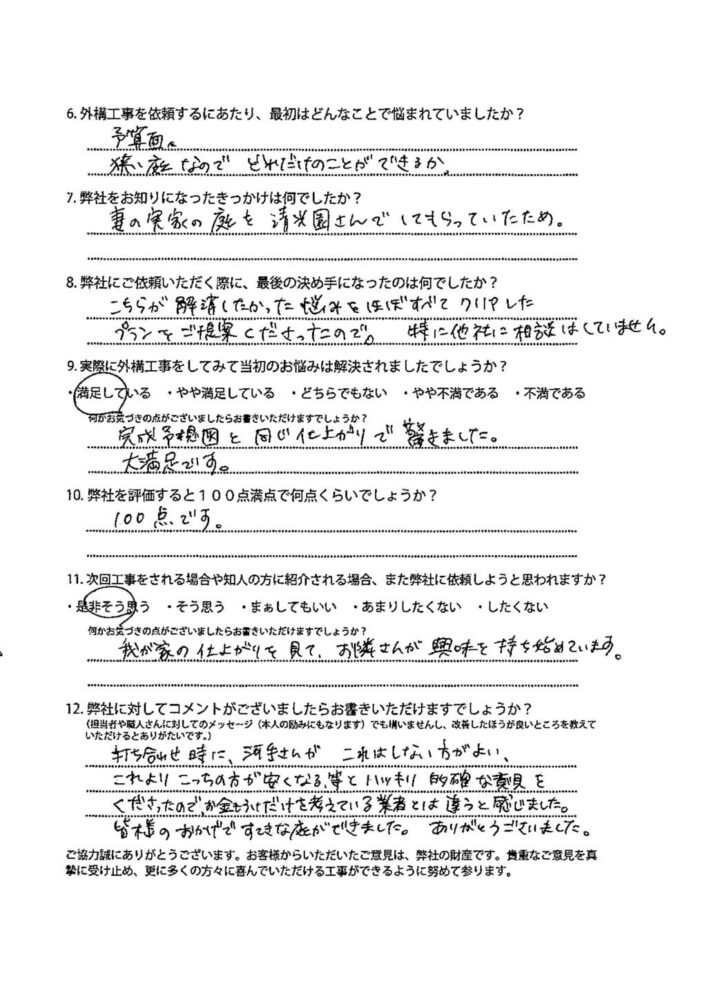 6. 外構工事を依頼するにあたり、最初はどんなことで悩まれていましたか？
予算面。
狭い庭なので どれだけのことができるか。
7. 弊社をお知りになったきっかけは何でしたか？
妻の実家の庭を 清光園さんで してもらっていたため。
8. 弊社にご依頼いただく際に、最後の決め手になったのは何でしたか？
こちらが 解消したかった 悩みを ほぼすべて クリアした
プランを ご提案くださったので。 特に他社に相談はしていません。
9. 実際に外構工事をしてみて当初のお悩みは解決されましたでしょうか？
・満足している ・やや満足している ・どちらでもない ・やや不満である ・不満である
何かお気づきの点がございましたらお書きいただけますでしょうか？
完成予想図と 同じ仕上がりで 驚きました。
大満足です。
10. 弊社を評価すると１００点満点で何点くらいでしょうか？
100点です。
11. 次回工事をされる場合や知人の方に紹介される場合、また弊社に依頼しようと思われますか？
・是非そう思う ・そう思う ・まぁしてもいい ・あまりしたくない ・したくない
何かお気づきの点がございましたらお書きいただけますでしょうか？
我が家の仕上がりを見て、お隣さんが 興味を持ち始めています。
12. 弊社に対してコメントがございましたらお書きいただけますでしょうか？
（担当者や職人さんに対してのメッセージ（本人の励みにもなります）でも構いませんし、改善したほうが良いところを教えて
いただけるとありがたいです。）
打ち合わせ時に、河手さんが これはしない方がよい、
これより こっちの方が安くなる、等と ハッキリ 的確な意見を
くださったので、お金もうけだけを考えている業者とは違うと感じました。
皆様のおかげですてきな庭ができました。 ありがとうございました。
ご協力誠にありがとうございます。お客様からいただいたご意見は、弊社の財産です。貴重なご意見を真
摯に受け止め、更に多くの方々に喜んでいただける工事ができるように努めて参ります。